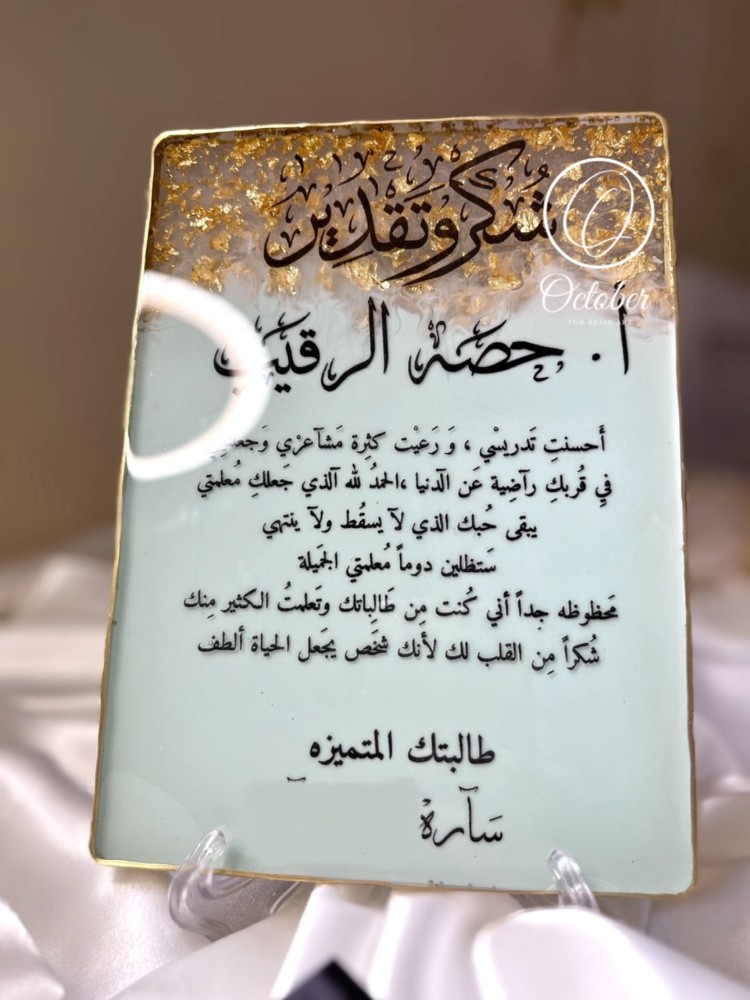 شُكر وَتَقدِير
October
FOR RESIN ART
أ. حصه الرقيب
أَحسنتِ تَدريسْي ، وَ رَعيْت كثِرة مَشآعرْي وَجعلتني
فيِ قُربكِ رآضِية عَن الَدنيا ،الحمدُ لله آلذي جَعلكِ مُعلمتي
يبقى حُبك الذي لآ يسقُط ولآ ينتهي
سَتظلين دوماً مُعلمتي الجَميلة
مَحظوظه جداً أني كُنت مِن طَالِباتك وتَعلمتُ الكثير مِنك
شُكراً مِن القلب لك لأنك شخَص يجَعل الحياة ألطف
طالبتك المتميزه
سَآرهْ